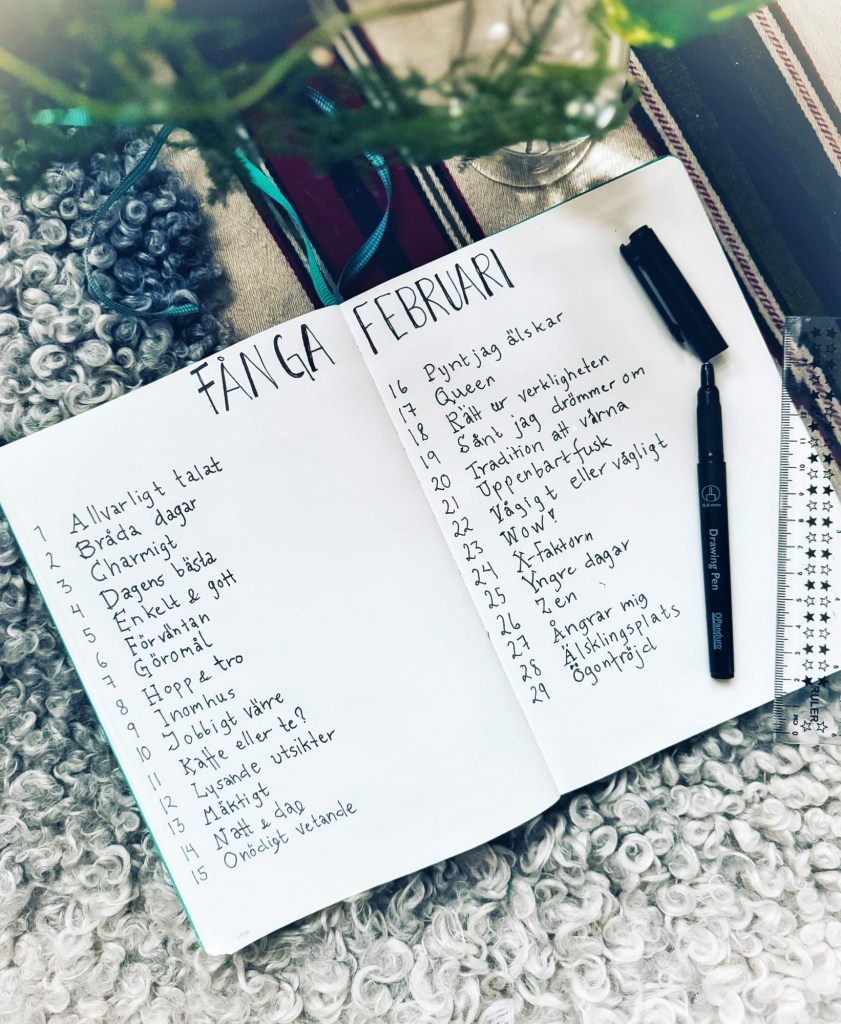 FÅNGA FEBRUARI
1 Allvarligt talat
2 Bråda dagar
3 Charmigt
4 Dagens bästa
5 Enkelt & gott
6 Förväntan
7 Göromål
8 Hopp & tro
9 Inomhus
10 Jobbigt värre
11 Kaffe eller te?
12 Lysande utsikter
13 Mäktigt
14 Natt & dag
15 Onödigt vetande
16 Pynt jag älskar
17 Queen
18 Rätt ur verkligheten
19 Sånt jag drömmer om
20 Tradition att värna
21 Uppenbart fusk
22 Vågigt eller vågligt
23 Wow!
24 X-faktorn
25 Yngre dagar
26 Zen
27 Ångrar mig
28 Älsklingsplats
29 Ögontröjd
Drawing Pen
Panduro
RULER